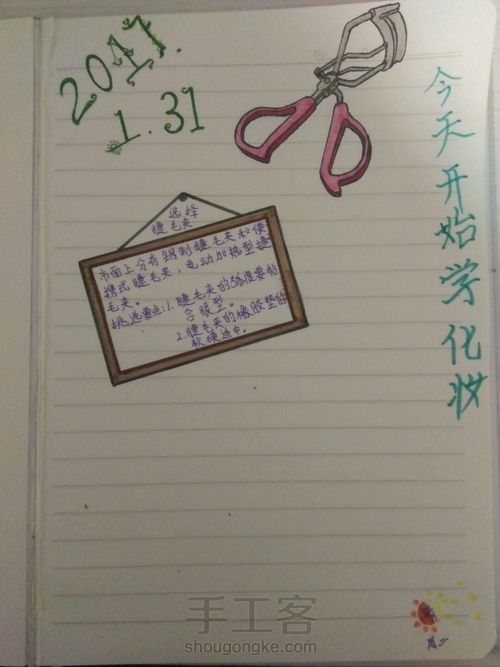 2017.
1.31
今天开始学化妆
选择
睫毛夹
市面上分有钢制睫毛夹和便
携式睫毛夹，电动加热型睫
毛夹。
挑选重点：1.睫毛夹的弧度要帖
合眼型。
2.睫毛夹的橡胶垫的
软硬适中。
周二
手工客
shougongke.com